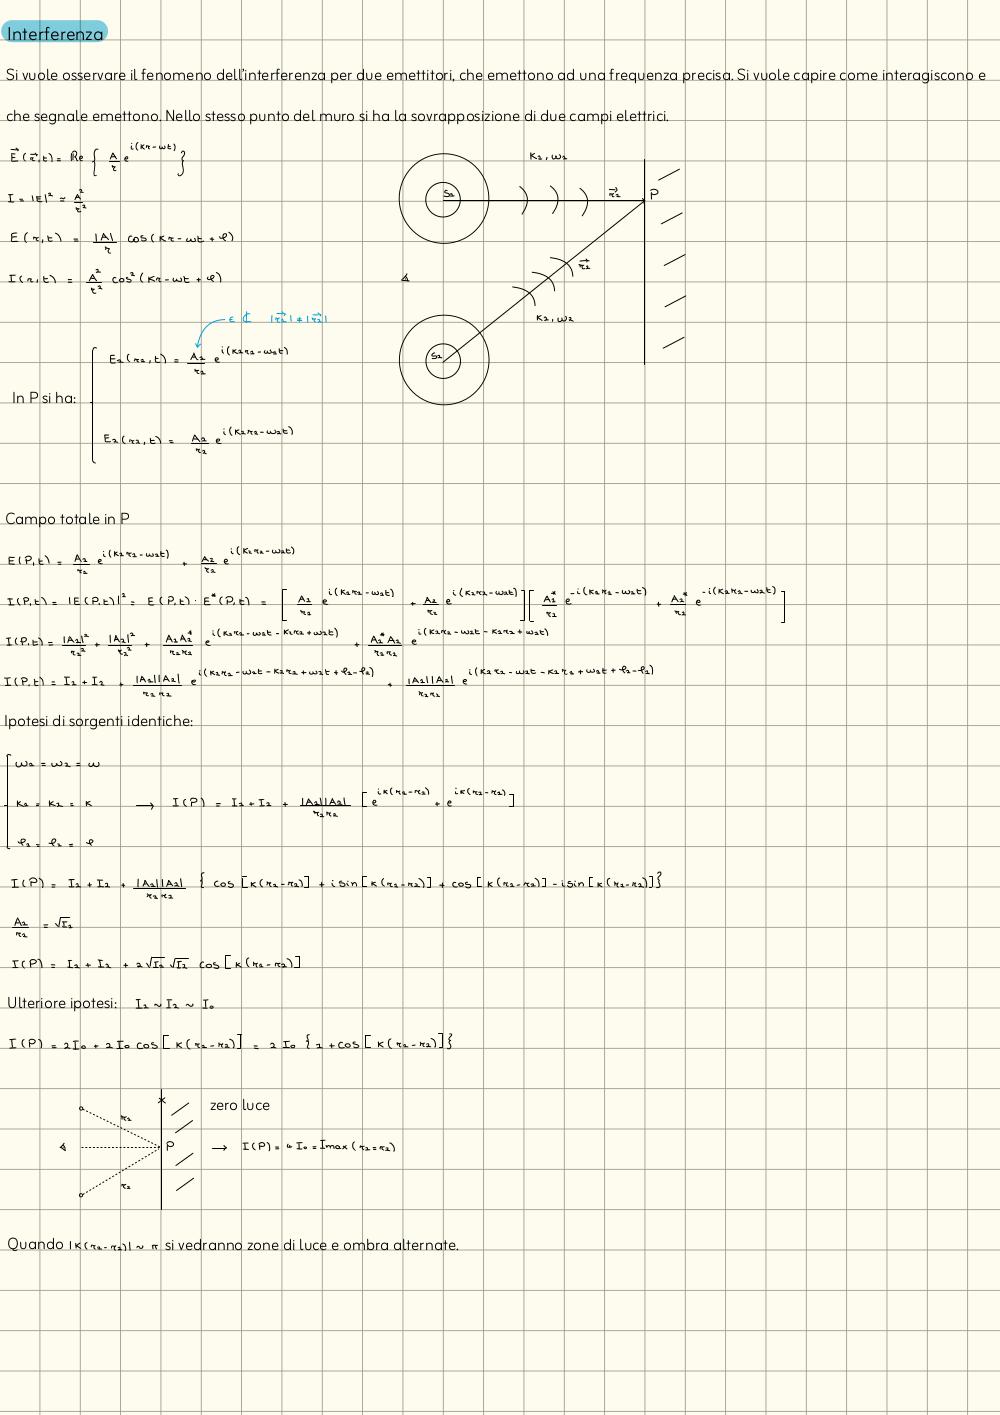 Interferenza
Si vuole osservare il fenomeno dell'interferenza per due emettitori, che emettono ad una frequenza precisa. Si vuole capire come interagiscono e
che segnale emettono. Nello stesso punto del muro si ha la sovrapposizione di due campi elettrici.
E⃗(r⃗,t) = Re { A/r e^{i(kr-ωt)} }
I = |E|² ≈ A²/r²
E(r,t) = |A|/r cos(kr-ωt+φ)
I(r,t) = A²/r² cos²(kr-ωt+φ)
k₁, ω₁
S₁
r⃗₁
P
r⃗₂
k₂, ω₂
S₂
∈ ℂ |r⃗₁| ≠ |r⃗₂|
In P si ha:
E₁(r₁,t) = A₁/r₁ e^{i(k₁r₁-ω₁t)}
E₂(r₂,t) = A₂/r₂ e^{i(k₂r₂-ω₂t)}
Campo totale in P
E(P,t) = A₁/r₁ e^{i(k₁r₁-ω₁t)} + A₂/r₂ e^{i(k₂r₂-ω₂t)}
I(P,t) = |E(P,t)|² = E(P,t) · E*(P,t) = [ A₁/r₁ e^{i(k₁r₁-ω₁t)} + A₂/r₂ e^{i(k₂r₂-ω₂t)} ][ A₁*/r₁ e^{-i(k₁r₁-ω₁t)} + A₂*/r₂ e^{-i(k₂r₂-ω₂t)} ]
I(P,t) = |A₁|²/r₁² + |A₂|²/r₂² + A₁A₂*/r₁r₂ e^{i(k₁r₁-ω₁t-k₂r₂+ω₂t)} + A₁*A₂/r₁r₂ e^{i(k₂r₂-ω₂t-k₁r₁+ω₁t)}
I(P,t) = I₁+I₂ + |A₁||A₂|/r₁r₂ e^{i(k₁r₁-ω₁t-k₂r₂+ω₂t+φ₁-φ₂)} + |A₁||A₂|/r₁r₂ e^{i(k₂r₂-ω₂t-k₁r₁+ω₁t+φ₂-φ₁)}
Ipotesi di sorgenti identiche:
ω₁ = ω₂ = ω
k₁ = k₂ = k → I(P) = I₁+I₂ + |A₁||A₂|/r₁r₂ [ e^{ik(r₁-r₂)} + e^{ik(r₂-r₁)} ]
φ₁ = φ₂ = φ
I(P) = I₁+I₂ + |A₁||A₂|/r₁r₂ { cos[k(r₁-r₂)] + i sin[k(r₁-r₂)] + cos[k(r₁-r₂)] - i sin[k(r₁-r₂)] }
A₁/r₁ = √I₁
I(P) = I₁+I₂ + 2√I₁ √I₂ cos[k(r₁-r₂)]
Ulteriore ipotesi: I₁ ~ I₂ ~ I₀
I(P) = 2I₀ + 2I₀ cos[k(r₁-r₂)] = 2I₀ {1+cos[k(r₁-r₂)]}
x
zero luce
r₁
P → I(P) = 4I₀ = Imax (r₁=r₂)
r₂
Quando |k(r₁-r₂)| ~ π si vedranno zone di luce e ombra alternate.